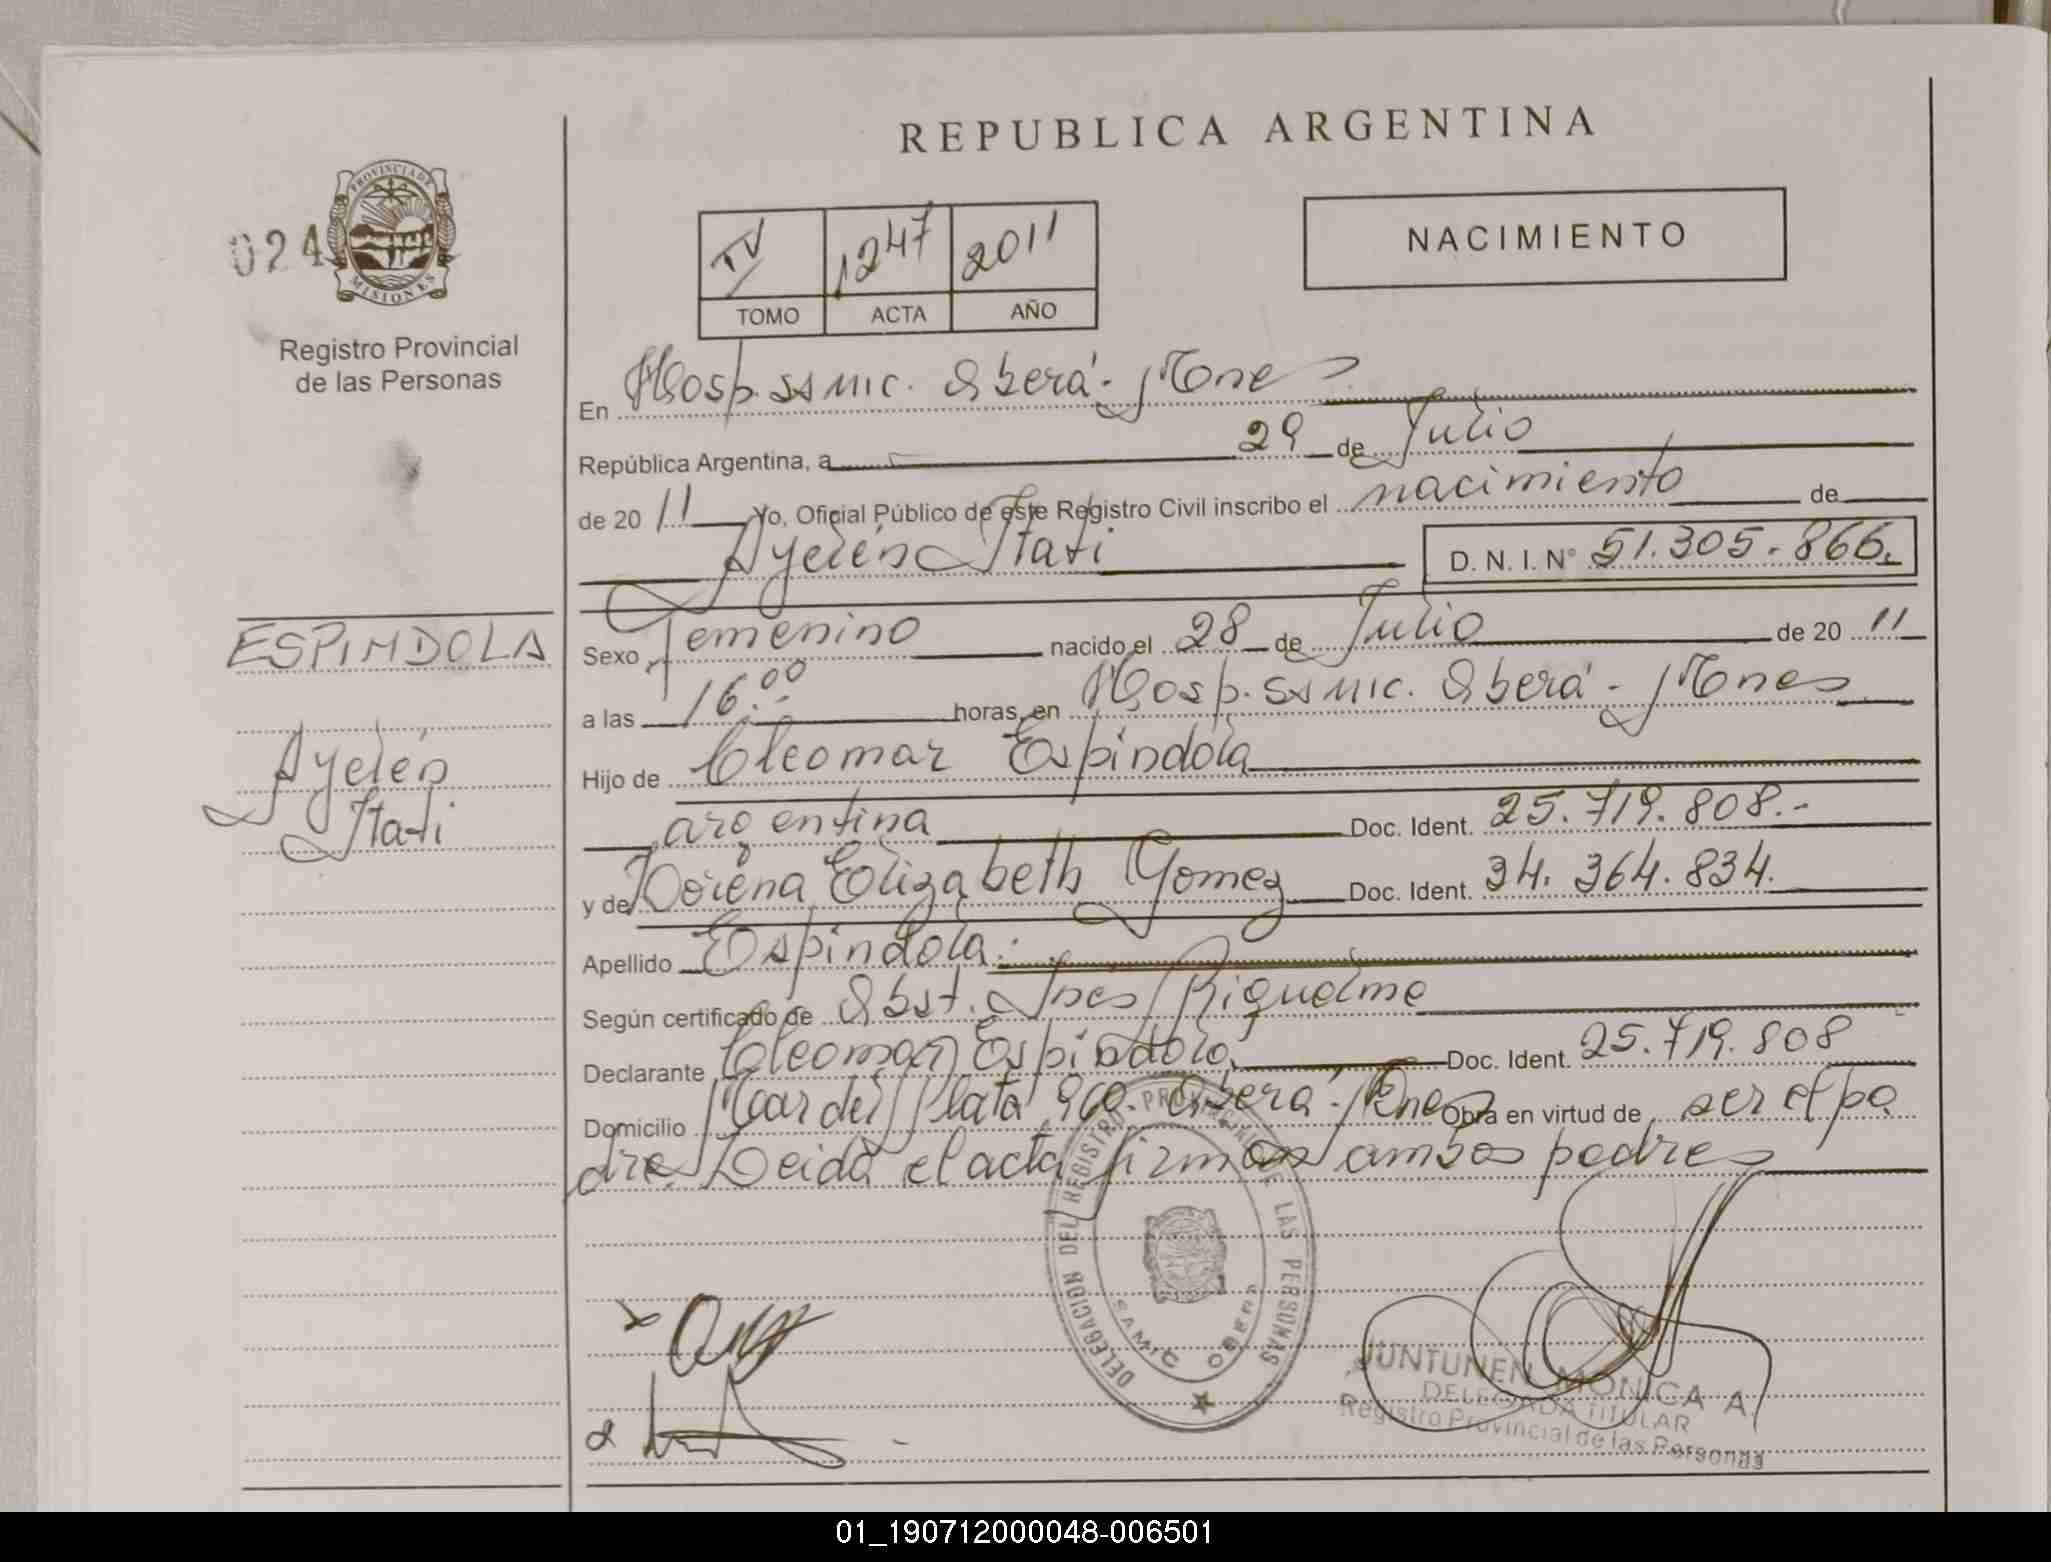 REPUBLICA ARGENTINA
PROVINCIA DE
MISIONES
024
Registro Provincial
de las Personas
IV 1247 2011
TOMO ACTA AÑO
NACIMIENTO
En Hosp. SAMIC. Oberá - Mnes
República Argentina, a 29 de Julio
de 20 11 Yo, Oficial Público de este Registro Civil inscribo el nacimiento de
Ayelén Itati D. N. I. N° 51.305.866.
ESPINDOLA
Ayelén
Itati
Sexo femenino nacido el 28 de Julio de 20 11
a las 16.00 horas, en Hosp. SAMIC. Oberá - Mnes
Hijo de Cleomar Espindola
argentina Doc. Ident. 25.719.808.-
y de Lorena Elizabeth Gomez Doc. Ident. 34.364.834.
Apellido Espindola.
Según certificado de Obst. Inés Riquelme
Declarante Cleomar Espindola Doc. Ident. 25.719.808
Domicilio Mar del Plata 960. Oberá - Mnes Obra en virtud de ser el pa
dre. Leida el acta firman ambos padres
DELEGACION DEL REGISTRO PROVINCIAL DE LAS PERSONAS
SAMIC OBERA
JUNTUNEN MONICA A.
DELEGADA TITULAR
Registro Provincial de las Personas
01_190712000048-006501